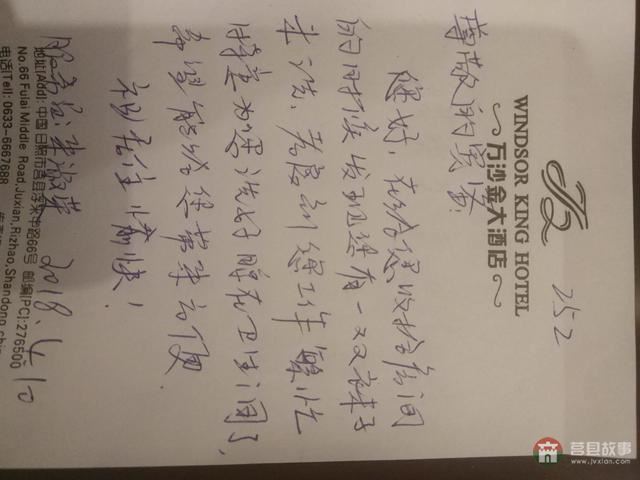 252
WINDSOR KING HOTEL
万沙金大酒店
尊敬的宾客:
您好,在给您收拾房间
的时候发现您有一双袜子
未洗,考虑到您工作繁忙
特意为您洗好晾在卫生间了,
希望能给您带来方便
祝您住店愉快!
服务员:
2018.4.10
地址(Add):中国日照市莒县浮来中路66号 邮编(PC):276500
No.66 Fulai Middle Road,Juxian,Rizhao,Shandong,
电话(Tel): 0633-6667688
莒县故事
www.jvxian.com